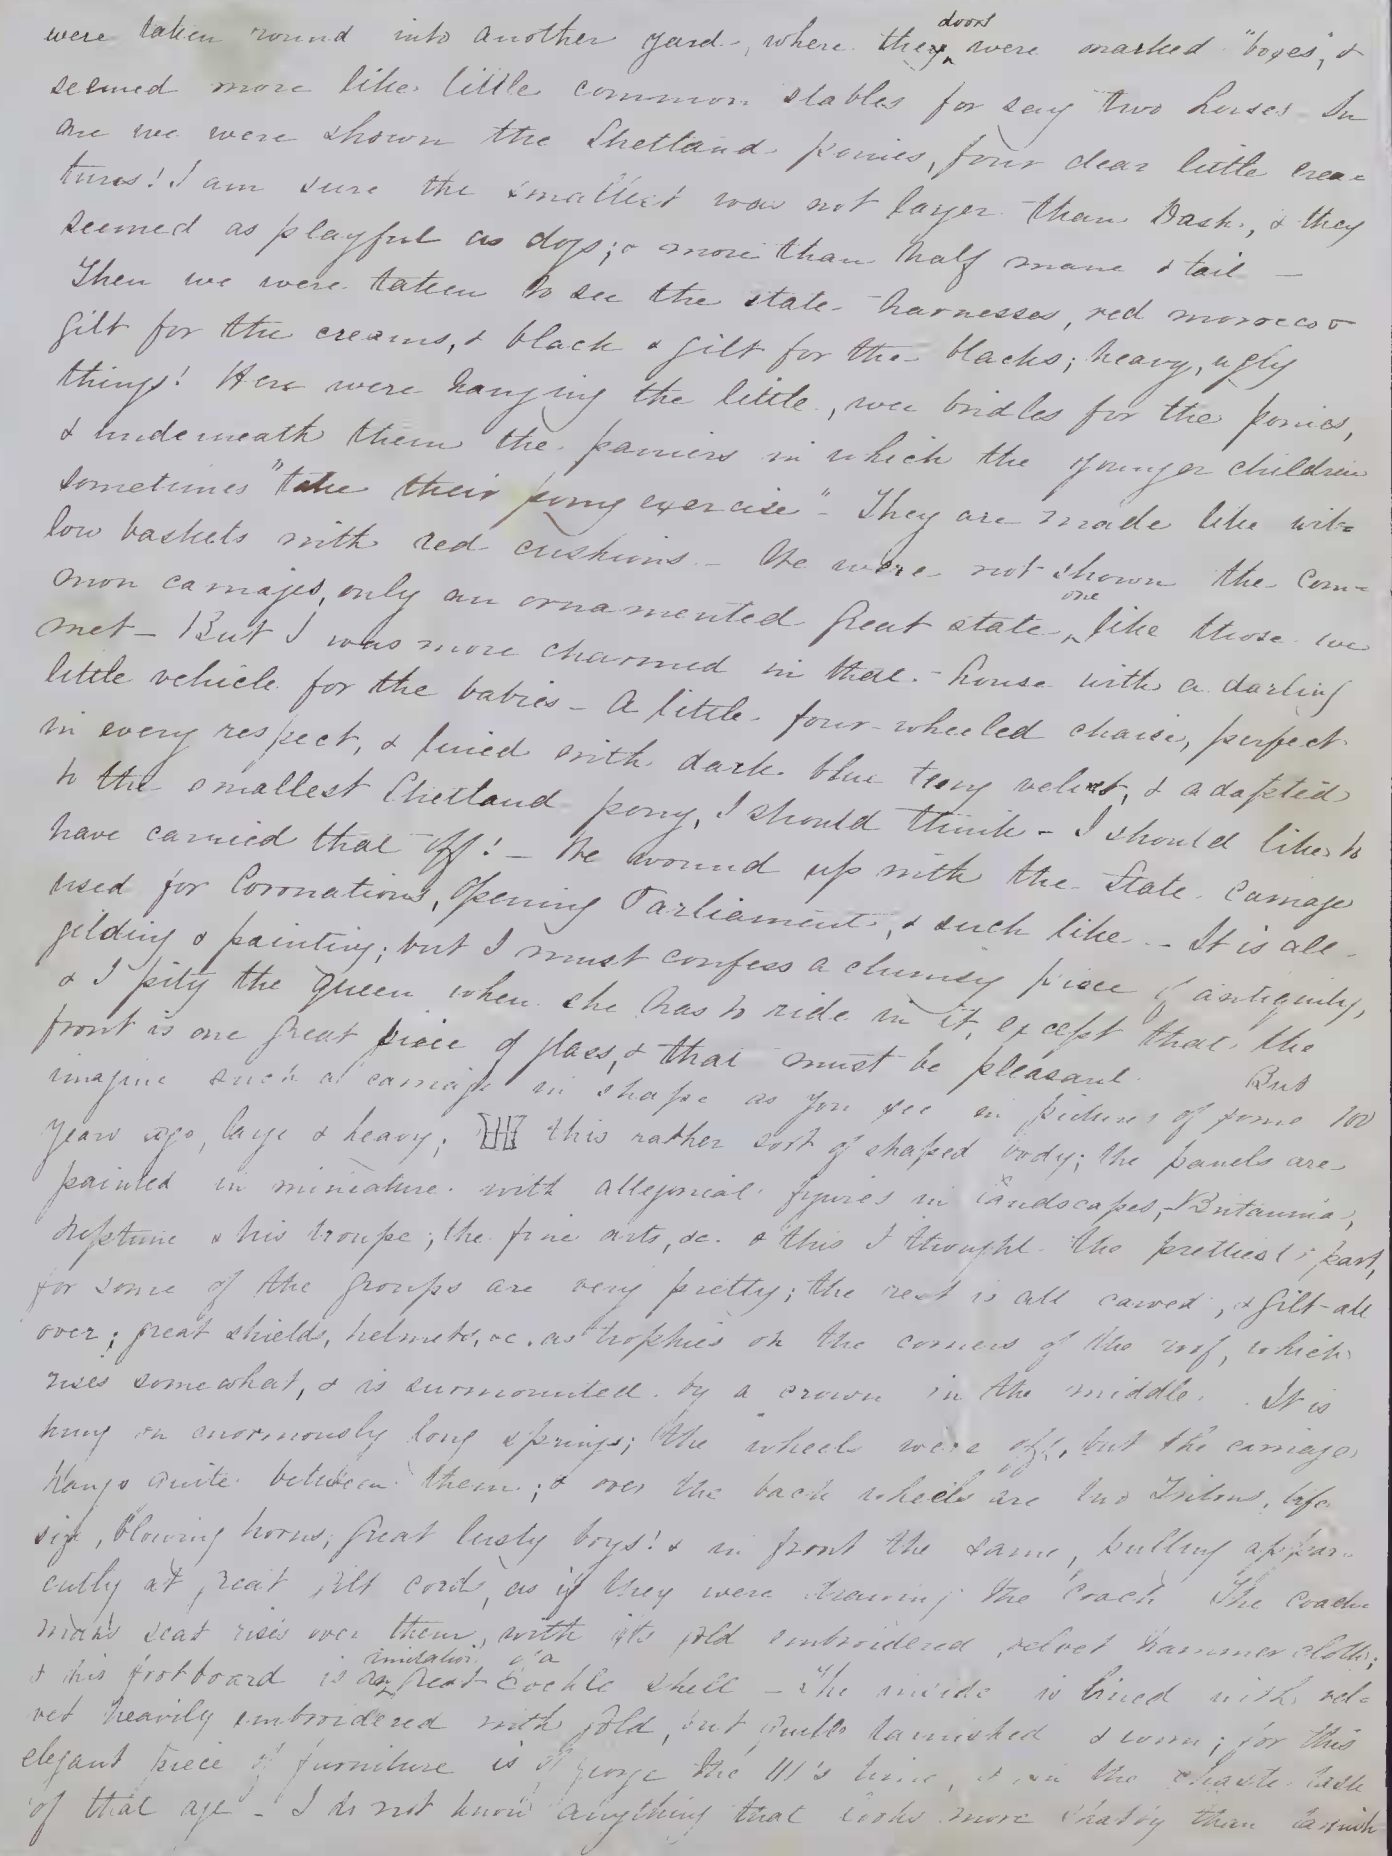 doors
were taken round into another yard, where they were marked "boxes", &
seemed more like little common stables for say two horses - In
one we were shown the Shetland ponies, four dear little crea=
tures! I am sure the smallest was not larger than Dash, & they
seemed as playful as dogs; & more than half mane & tail —
Then we were taken to see the state harnesses, red morocco &
gilt for the creams, & black & gilt for the blacks; heavy, ugly
things! Here were hanging the little, wee bridles for the ponies,
& underneath them the panniers in which the younger children
sometimes "take their pony exercise" - They are made like wil=
low baskets with red cushions - We were not shown the com=
mon carriages, only an ornamented great state one like those we
met - But I was more charmed in that house with a darling
little vehicle for the babies - A little four-wheeled chaise, perfect
in every respect, & lined with dark blue velvet, & adapted
to the smallest Chetland pony, I should think - I should like to
have carried that off! - We wound up with the State carriage
used for Coronations, Opening Parliament, & such like - It is all
gilding & painting; but I must confess a clumsy piece of antiquity,
& I pity the queen when she has to ride in it, except that the
front is one great piece of glass, & that must be pleasant. But
imagine such a carriage in shape as you see in pictures of some 100
years ago, large & heavy; this rather sort of shaped body; the panels are
painted in miniature with allegorical figures in landscapes, - Britannia,
Neptune & his troupe; the fine arts, &c. & this I thought the prettiest part,
for some of the groups are very pretty; the rest is all carved, & gilt all
over; great shields, helmets, &c. as trophies on the corners of the roof, which
rises somewhat, & is surmounted by a crown in the middle. It is
hung on enormously long springs; the wheels were off, but the carriage
hangs quite between them; & over the back wheels are two Tritons, life
size, blowing horns, great lusty boys! & in front the same, pulling appar=
ently at great gilt cords, as if they were drawing the coach The coach=
man's seat rises over them, with its gold embroidered velvet hammer cloth;
& his footboard is an imitation of a great cockle shell - The inside is lined with vel=
vet heavily embroidered with gold, but quite tarnished & worn; for this
elegant piece of furniture is of George the III's time, & in the chaste taste
of that age - I do not know anything that looks more shabby than tarnish